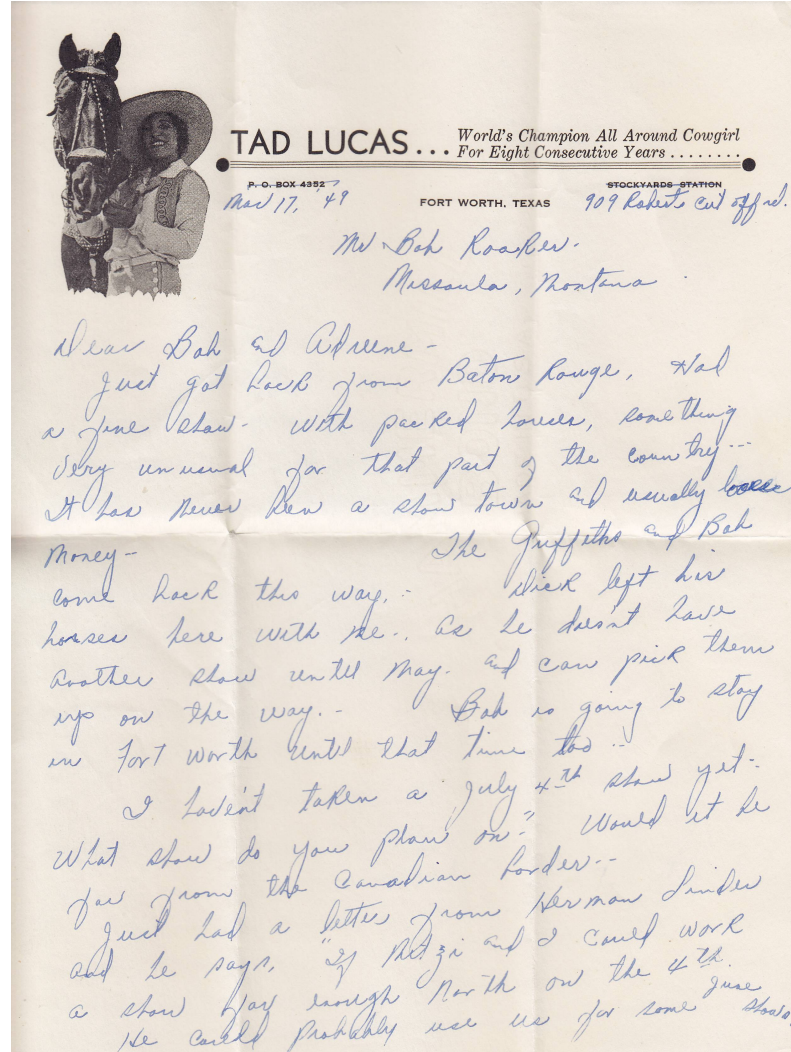 TAD LUCAS... World's Champion All Around Cowgirl
For Eight Consecutive Years ........
P. O. BOX 4352 STOCKYARDS STATION
Mar 17, '49 FORT WORTH, TEXAS 909 Roberts cut off rd.
Mr Bob
Missoula, Montana
Dear Bob and
Just got back from Baton Rouge, Had
a fine show - with packed houses, something
very unusual for that part of the country --
It has never been a show town and usually
money - The Griffiths and Bob
come back this way. - Dick left his
horses here with me -, as he doesn't have
another show until May. and can pick them
up on the way. - Bob is going to stay
in Fort Worth until that time too --
I haven't taken a July 4th show yet -
What show do you plan on? Would it be
far from the Canadian border --
Just had a letter from Herman Linder
and he says, "If Mitzi and I could work
a show far enough North on the 4th.
He could probably use us for some June shows